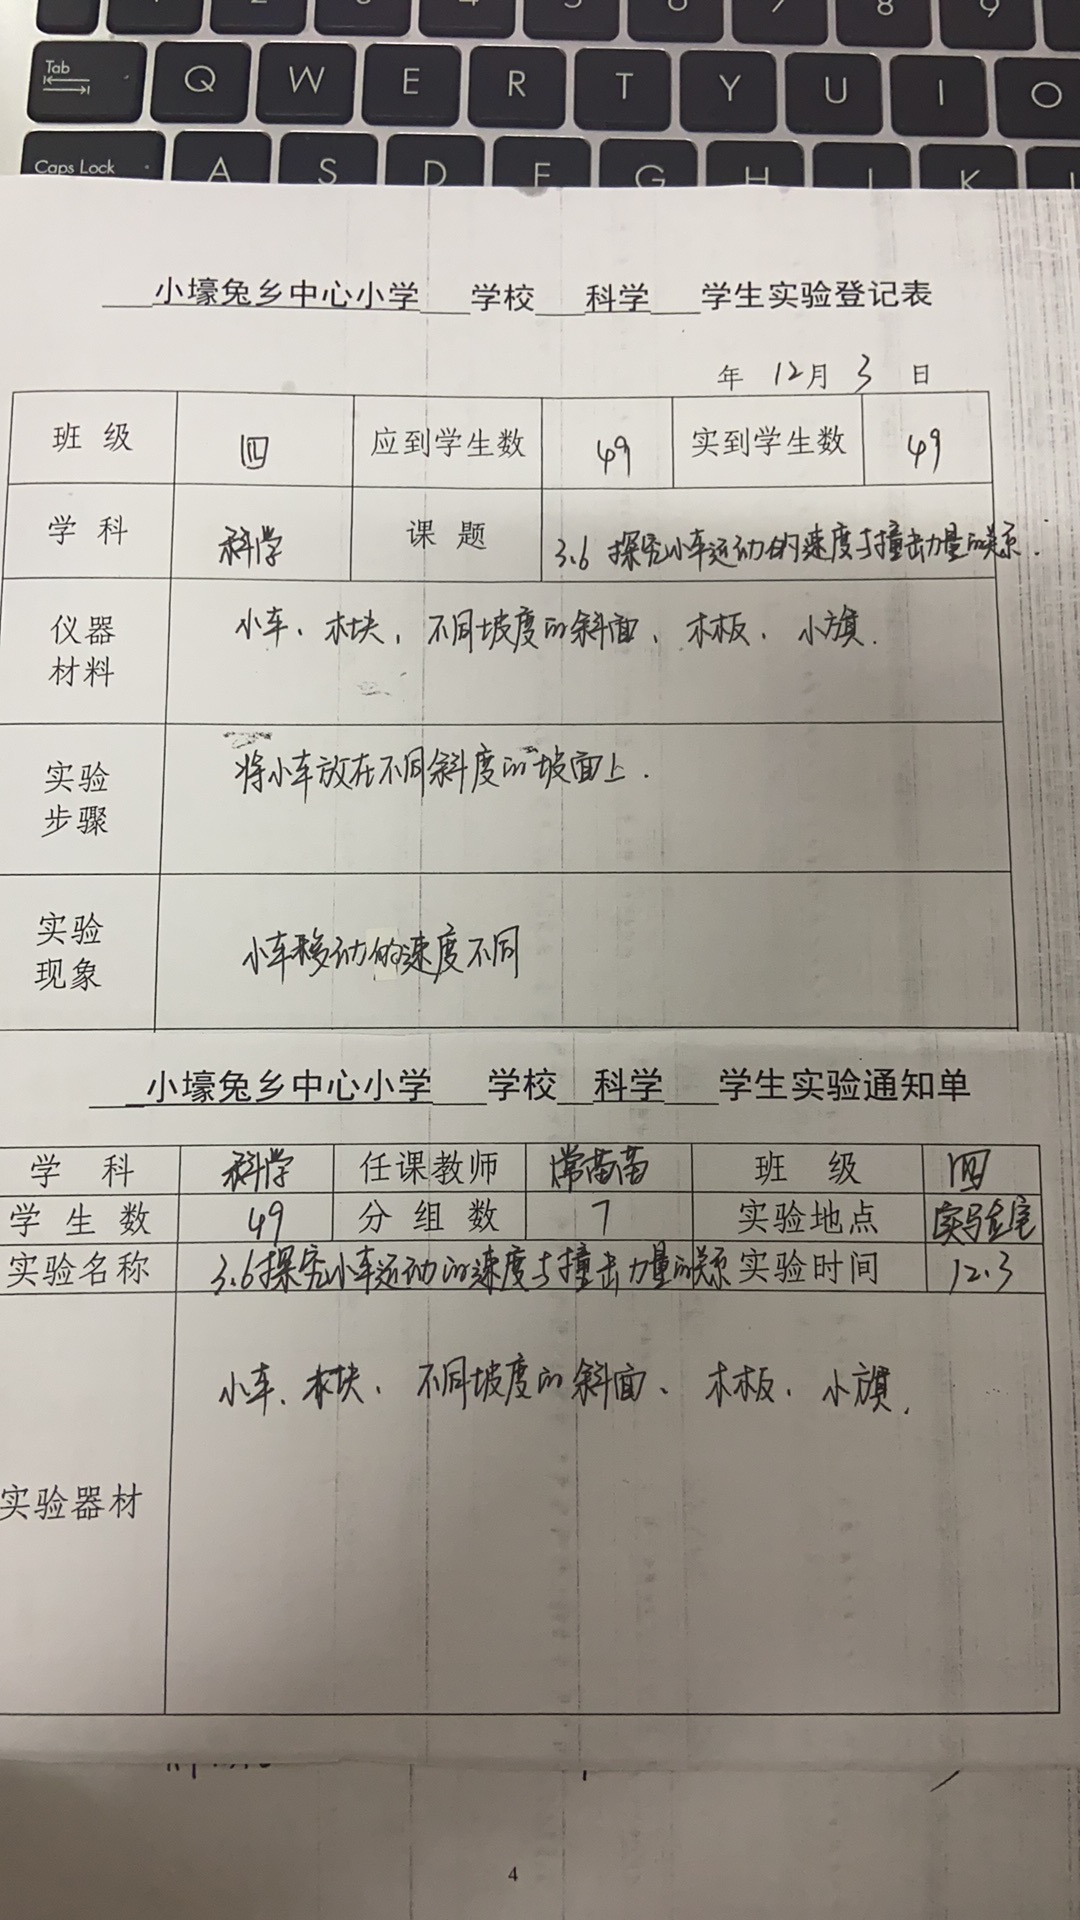 Tab Q W E R T Y U I O
Caps Lock A S D F G H J K
小壕兔乡中心小学 学校 科学 学生实验登记表
年 12月 3 日
班 级 四 应到学生数 49 实到学生数 49
学 科 科学 课 题 3.6 探究小车运动的速度与撞击力量的关系.
仪器材料 小车、木块、不同坡度的斜面、木板、小旗.
实验步骤 将小车放在不同斜度的坡面上.
实验现象 小车移动的速度不同
小壕兔乡中心小学 学校 科学 学生实验通知单
学 科 科学 任课教师 常苗苗 班 级 四
学 生 数 49 分 组 数 7 实验地点 实验室
实验名称 3.6探究小车运动的速度与撞击力量的关系 实验时间 12.3
实验器材 小车、木块、不同坡度的斜面、木板、小旗.
4